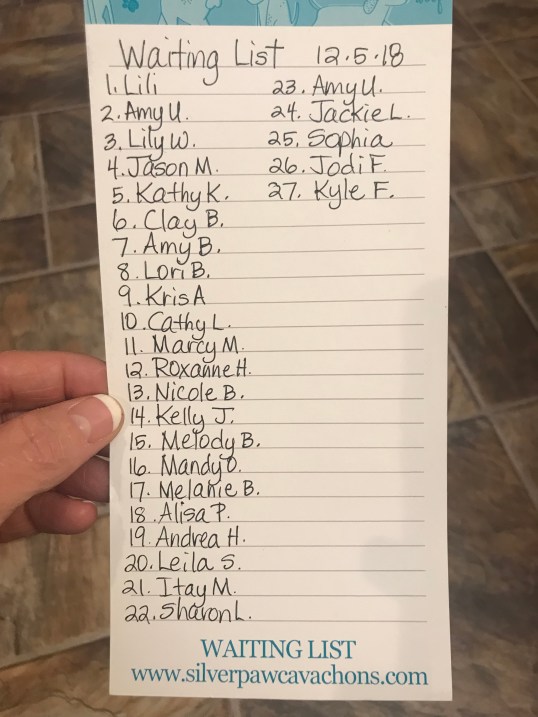 Waiting List 12.5.18
1. Lili
2. Amy U.
3. Lily W.
4. Jason M.
5. Kathy K.
6. Clay B.
7. Amy B.
8. Lori B.
9. Kris A
10. Cathy L.
11. Marcy M.
12. Roxanne H.
13. Nicole B.
14. Kelly J.
15. Melody B.
16. Mandy O.
17. Melanie B.
18. Alisa P.
19. Andrea H.
20. Leila S.
21. Itay M.
22. Sharon L.
23. Amy U.
24. Jackie L.
25. Sophia
26. Jodi F.
27. Kyle F.
WAITING LIST
www.silverpawcavachons.com